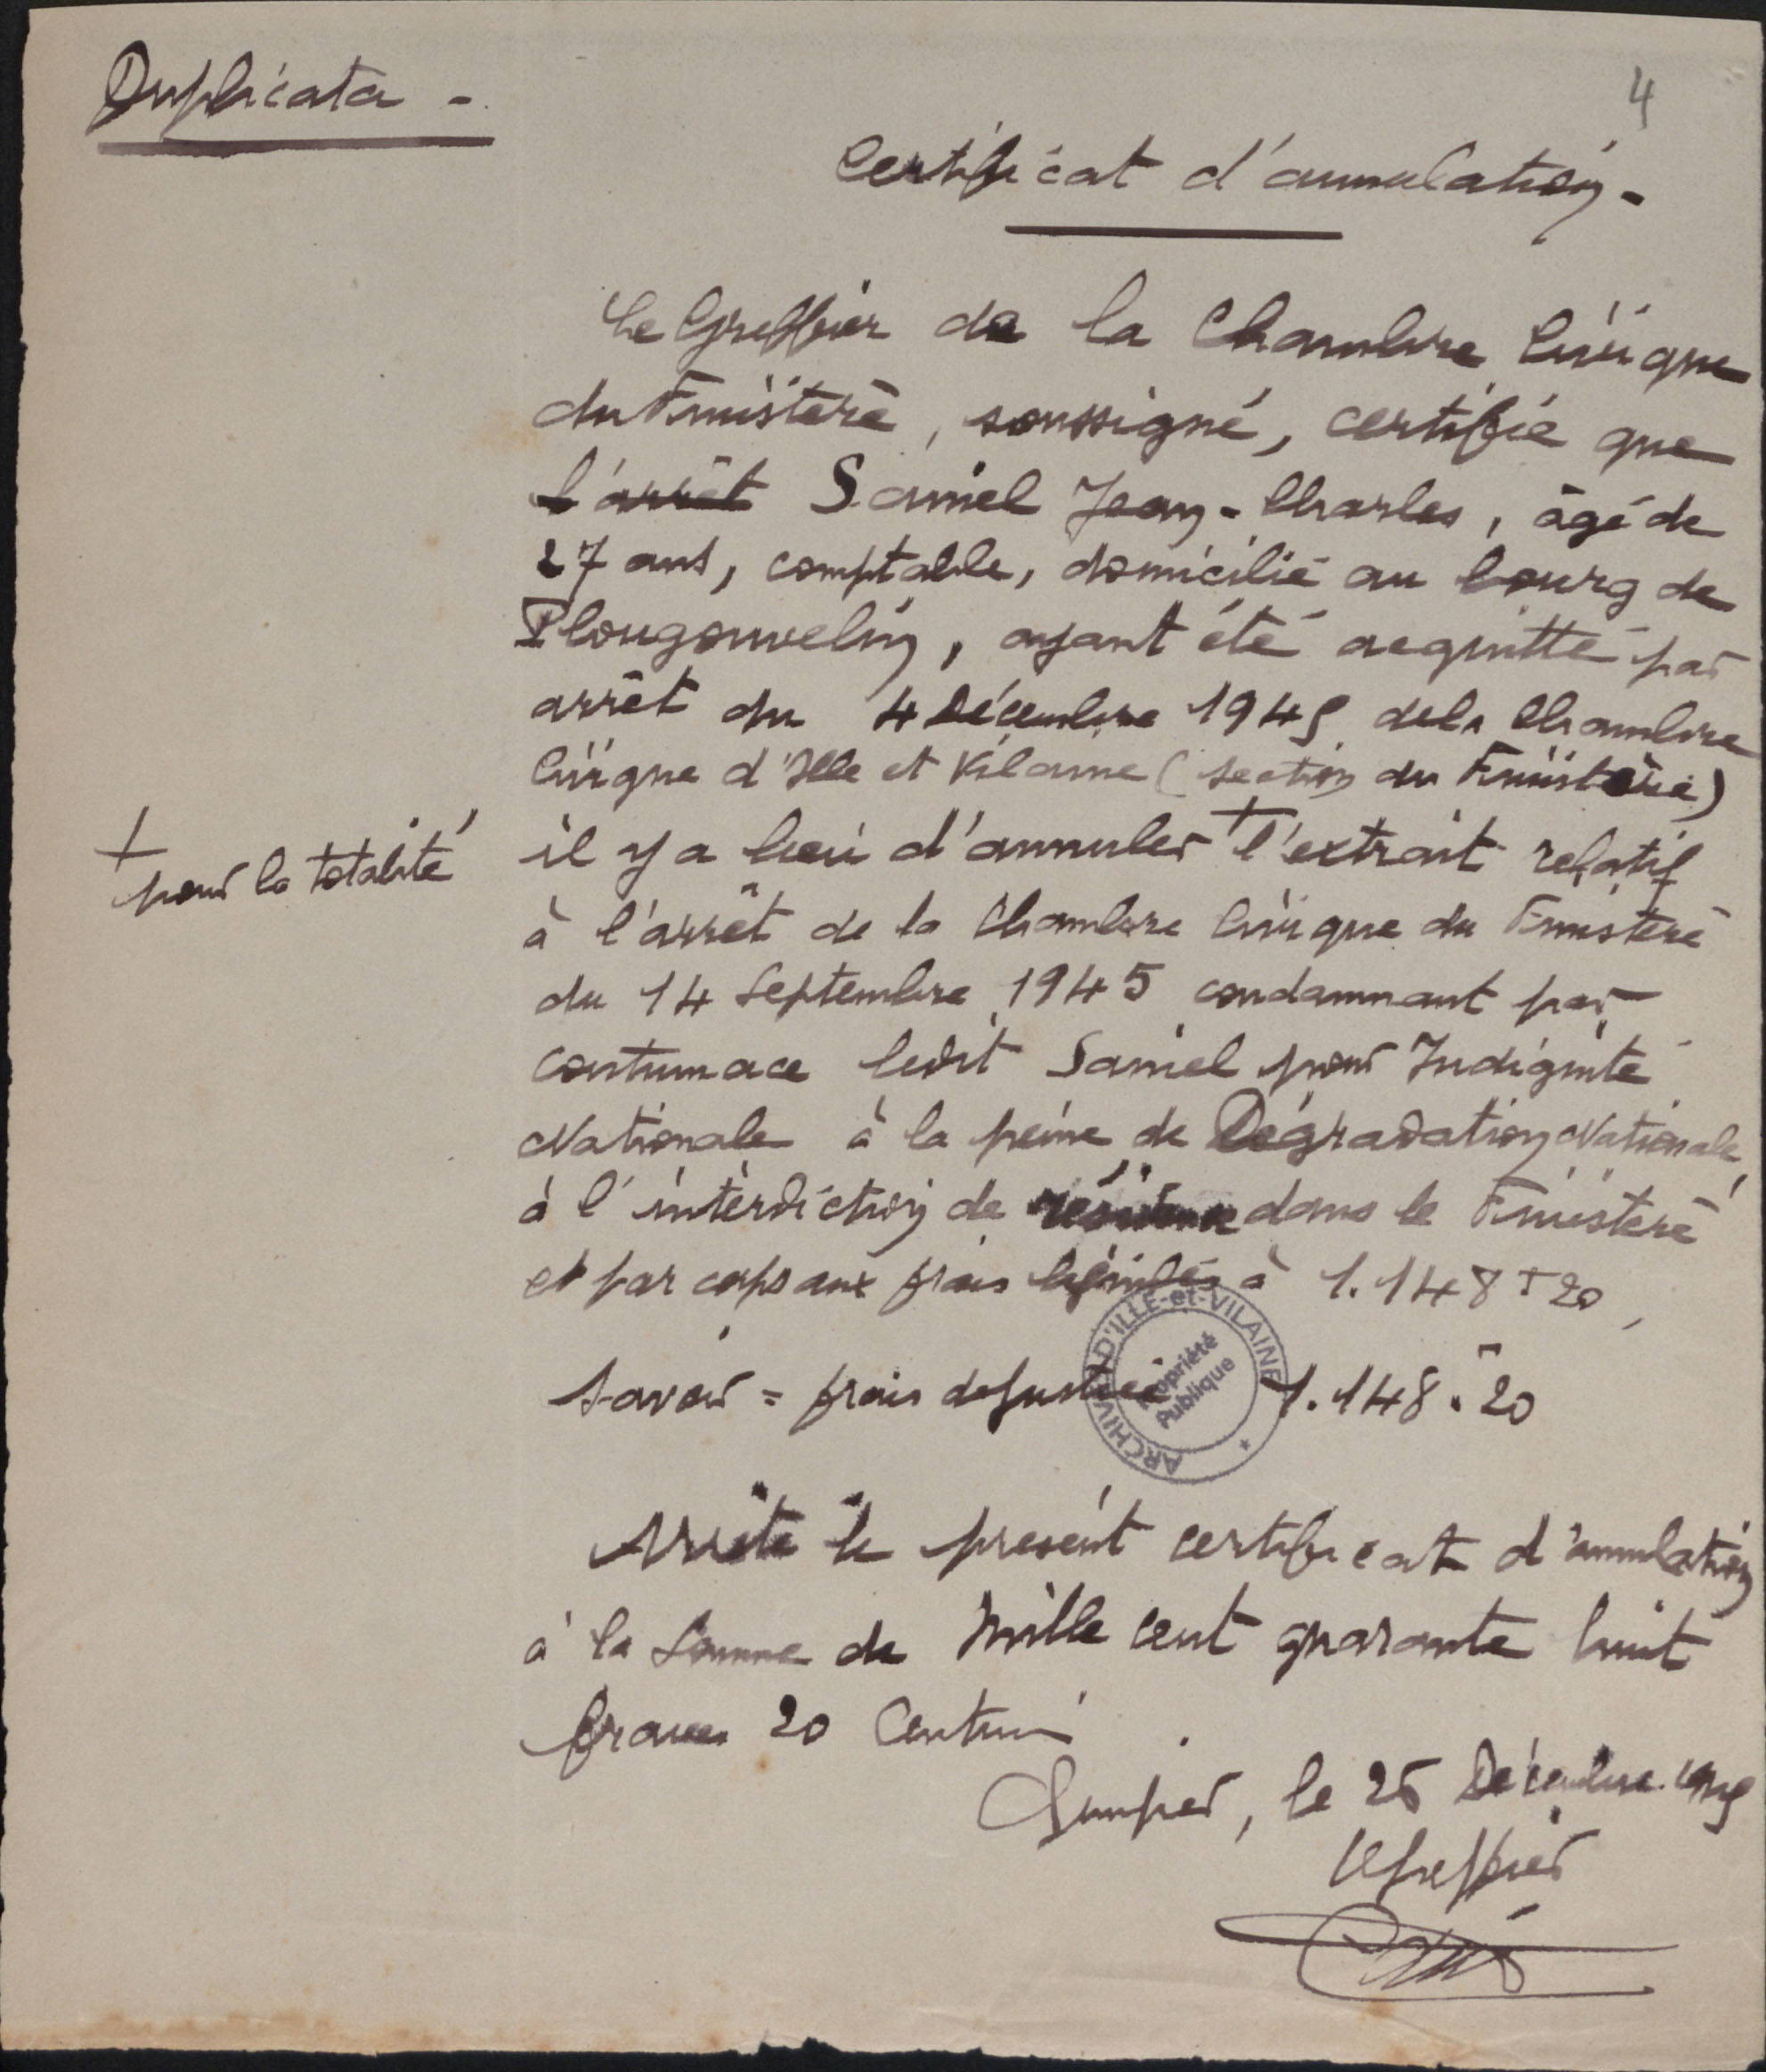 Duplicata -
4
Certificat d'annulation -
Le Greffier de la Chambre Civique
du Finistère, soussigné, certifie que
l'arrêt Saniel Jean-Charles, âgé de
27 ans, comptable, domicilié au bourg de
Plougonvelin, ayant été acquitté par
arrêt du 4 Décembre 1945 de la Chambre
Civique d'Ille et Vilaine (section du Finistère)
il y a lieu d'annuler + l'extrait relatif
+ pour la totalité
à l'arrêt de la Chambre Civique du Finistère
du 14 Septembre 1945 condamnant par
contumace ledit Saniel pour Indignité
Nationale à la peine de Dégradation Nationale,
à l'interdiction de résidence dans le Finistère
et par corps aux frais liquidés à 1.148 F 20,
Savoir = frais de justice 1.148.20
ARCHIVES D'ILLE-et-VILAINE *
Propriété
Publique
Arrêté le présent certificat d'annulation
à la somme de Mille cent quarante huit
francs 20 Centimes
Quimper, le 26 Décembre 1945
Le Greffier